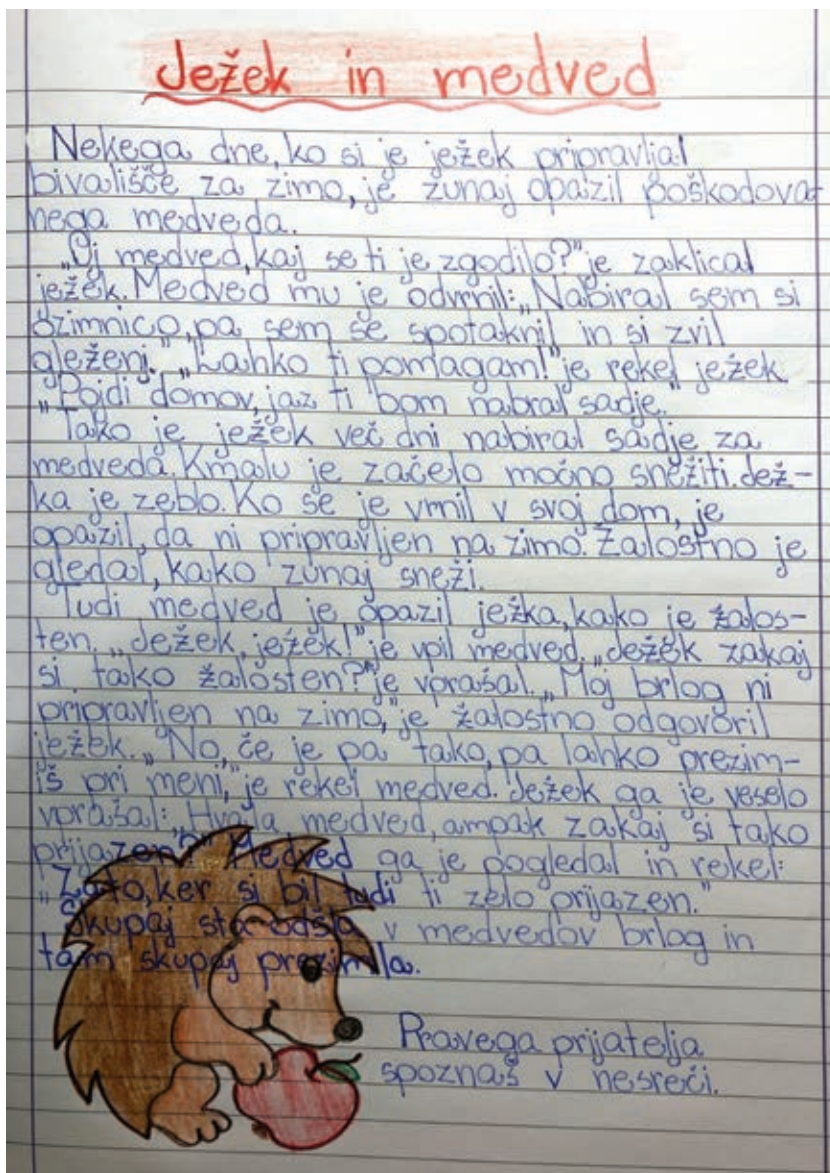 Ježek in medved
Nekega dne, ko si je ježek pripravljal
bivališče za zimo, je zunaj opazil poškodova-
nega medveda.
„Oj medved, kaj se ti je zgodilo?" je zaklical
ježek. Medved mu je odvrnil: „Nabiral sem si
ozimnico, pa sem se spotaknil in si zvil
gleženj." „Lahko ti pomagam!" je rekel ježek
„Pojdi domov, jaz ti bom nabral sadje."
Tako je ježek več dni nabiral sadje za
medveda. Kmalu je začelo močno snežiti. Jež-
ka je zeblo. Ko se je vrnil v svoj dom, je
opazil, da ni pripravljen na zimo. Žalostno je
gledal, kako zunaj sneži.
Tudi medved je opazil ježka, kako je žalos-
ten. „Ježek, ježek!" je vpil medved. „Ježek zakaj
si tako žalosten?" je vprašal. „Moj brlog ni
pripravljen na zimo," je žalostno odgovoril
ježek. „No, če je pa tako, pa lahko prezim-
iš pri meni," je rekel medved. Ježek ga je veselo
vprašal: „Hvala medved, ampak zakaj si tako
prijazen?" Medved ga je pogledal in rekel:
„Zato, ker si bil tudi ti zelo prijazen."
Skupaj sta odšla v medvedov brlog in
tam skupaj prezimila.
Pravega prijatelja
spoznaš v nesreči.